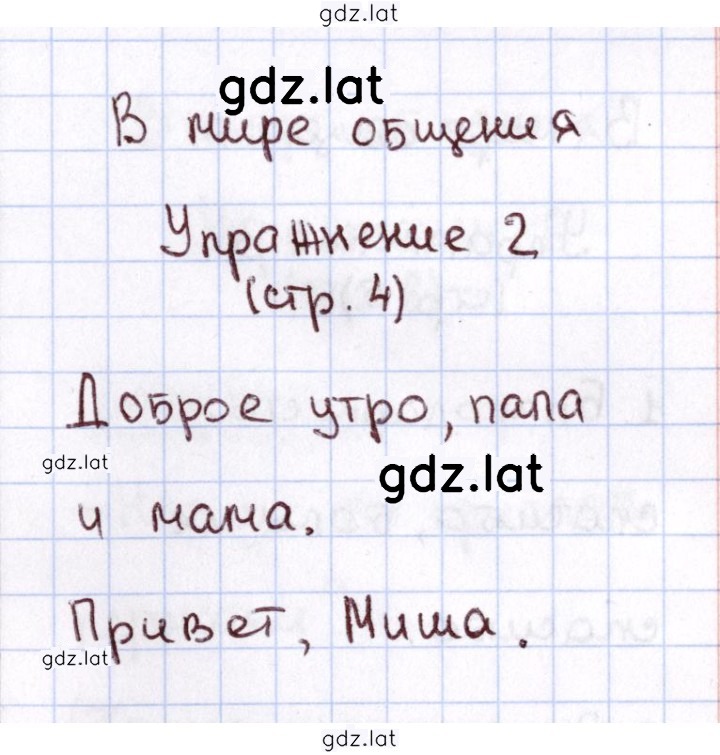 gdz.lat
gdz.lat
В мире общения
Упражнение 2
(стр. 4)
Доброе утро, папа
gdz.lat
gdz.lat
и мама.
Привет, Миша.
gdz.lat
gdz.lat